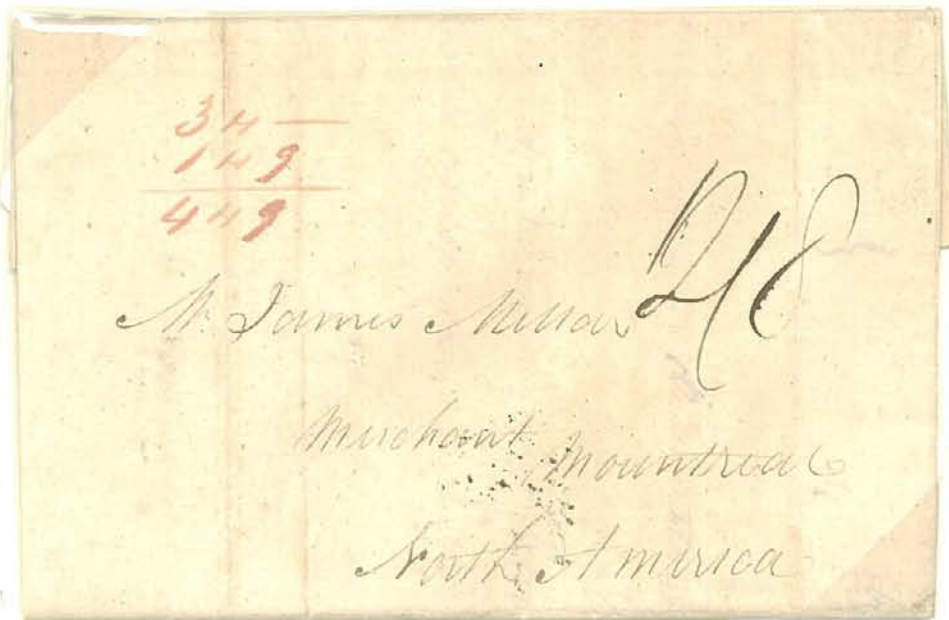 3 " —
1 " 9
4 " 9
Mr James Millar
Merchant Mountreal
North America